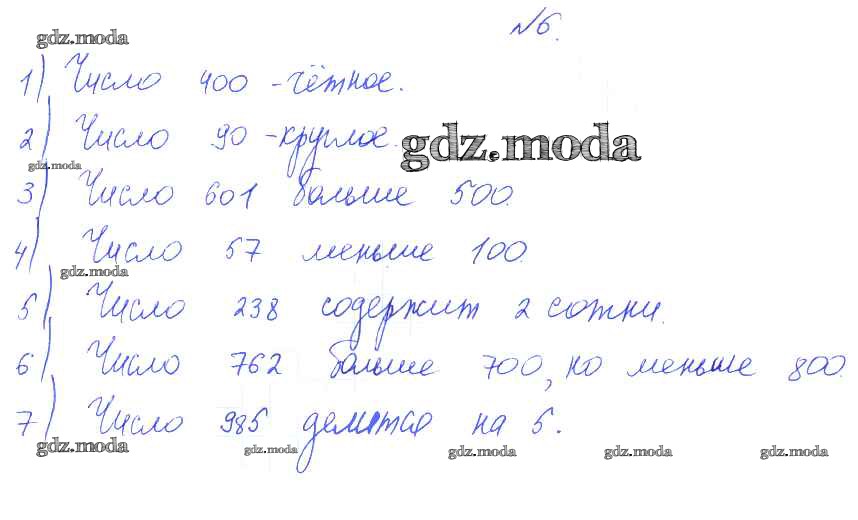 №6.
gdz.moda
1) Число 400 - чётное.
2) Число 90 - круглое.
gdz.moda
gdz.moda
3) Число 601 больше 500.
4) Число 57 меньше 100.
gdz.moda
5) Число 238 содержит 2 сотни.
6) Число 762 больше 700, но меньше 800.
7) Число 985 делится на 5.
gdz.moda gdz.moda gdz.moda gdz.moda gdz.moda